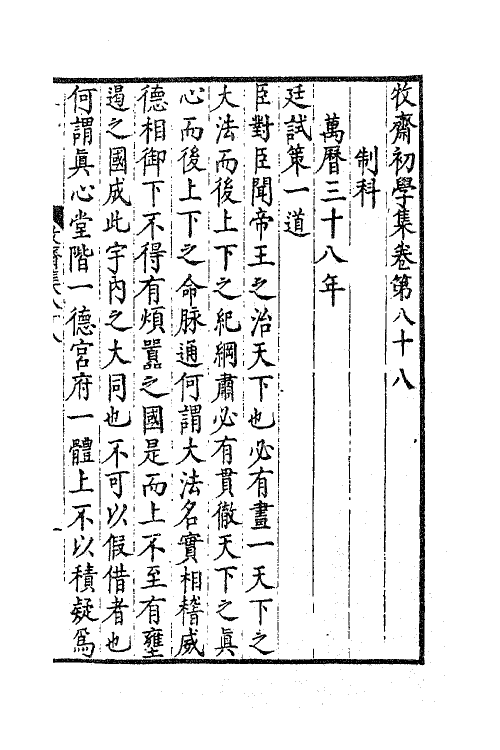 牧齋初學集卷第八十八
制科
萬曆三十八年
廷試策一道
臣對臣聞帝王之治天下也必有畫一天下之
大法而後上下之紀綱肅必有貫徹天下之真
心而後上下之命脉通何謂大法名實相稽威
德相御下不得有煩囂之國是而上不至有壅
遏之國成此宇內之大同也不可以假借者也
何謂眞心堂階一德宮府一體上不以積疑爲